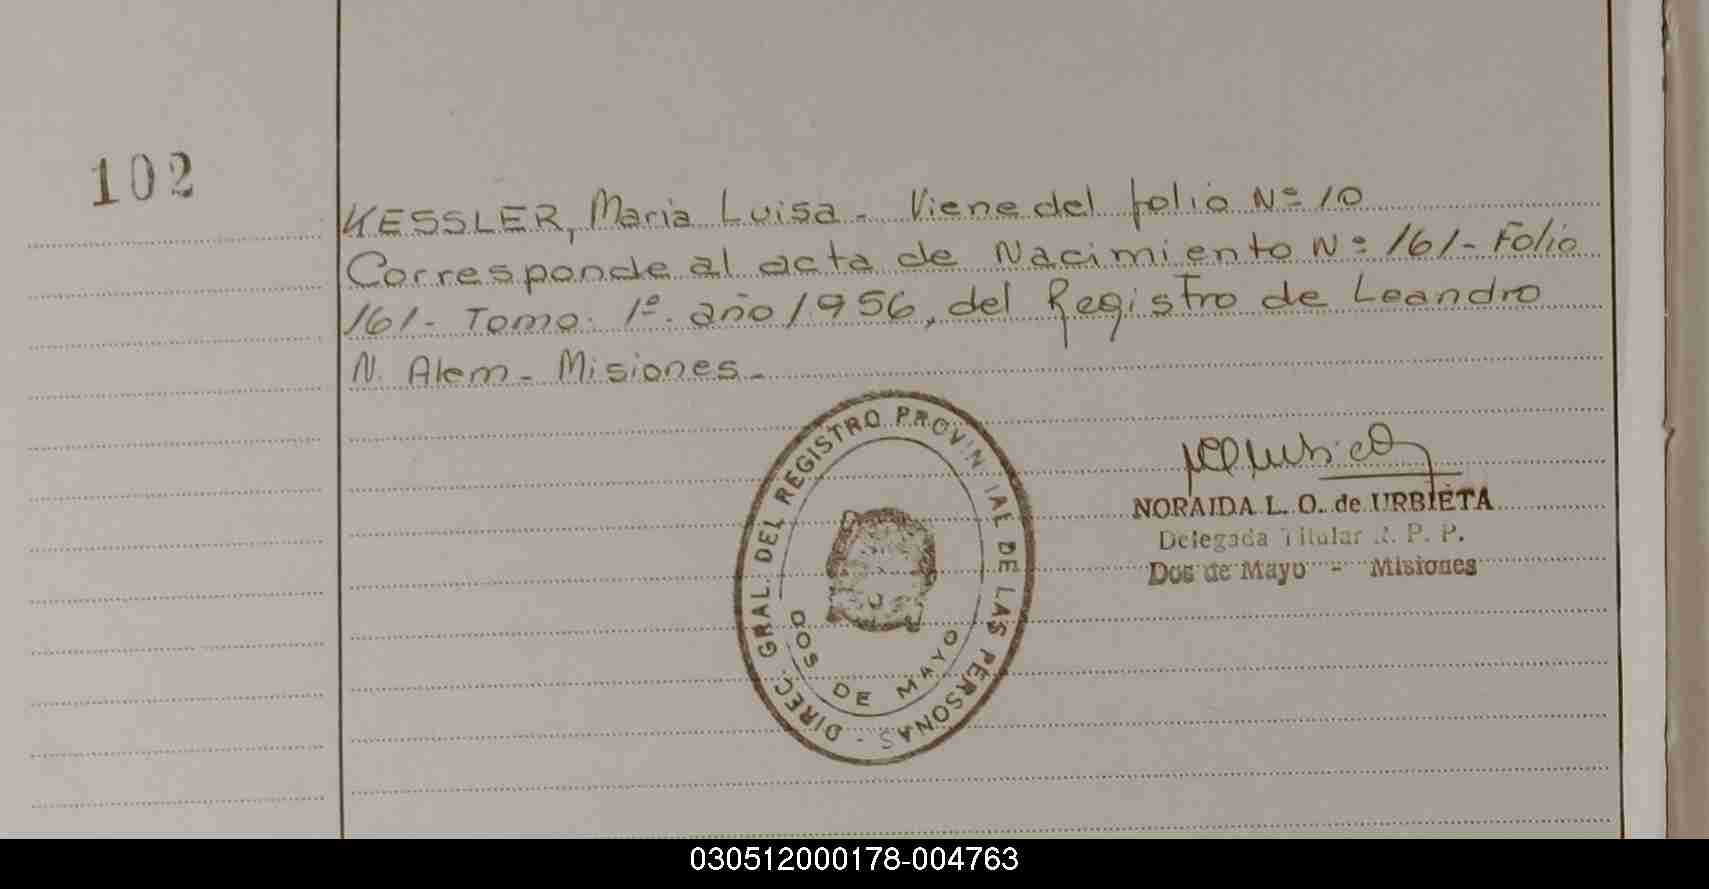 102
KESSLER, Maria Luisa - Viene del folio Nº 10
Corresponde al acta de Nacimiento Nº 161 - Folio
161 - Tomo 1º. año 1956, del Registro de Leandro
N. Alem - Misiones -
DIREC. GRAL. DEL REGISTRO PROVIN IAE DE LAS PERSONAS -
DOS DE MAYO
NORAIDA L. O. de URBIETA
Delegada Titular R. P. P.
Dos de Mayo - Misiones
030512000178-004763